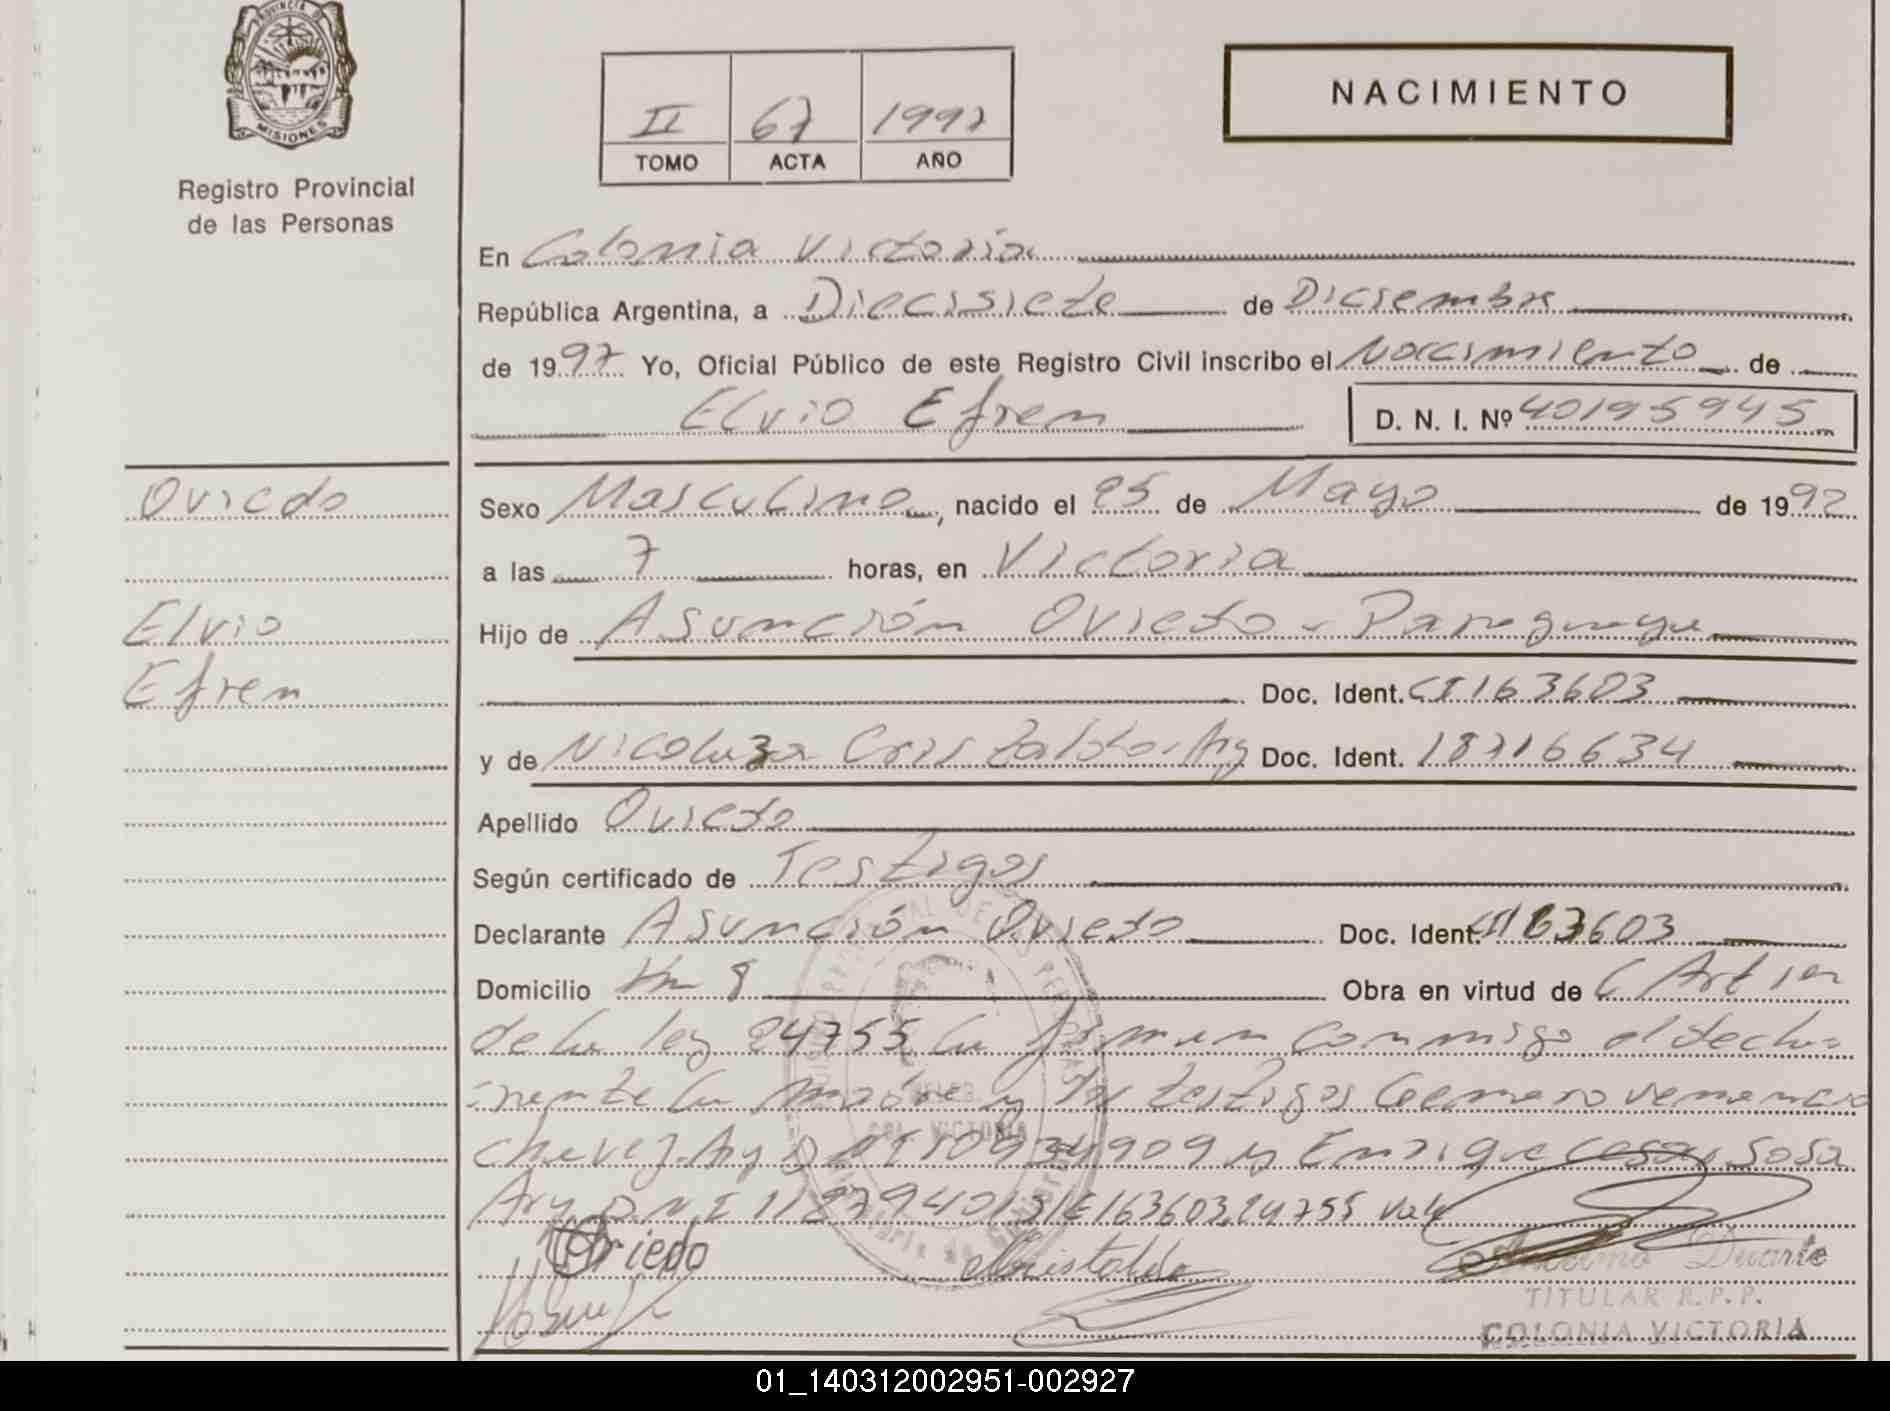 PROVINCIA DE
MISIONES
Registro Provincial
de las Personas
II 67 1997
TOMO ACTA AÑO
NACIMIENTO
En Colonia Victoria
República Argentina, a Diecisiete de Diciembre
de 1997 Yo, Oficial Público de este Registro Civil inscribo el Nacimiento de
Elvio Efren D. N. I. Nº 40195945
Oviedo
Elvio
Efren
Sexo Masculino, nacido el 25 de Mayo de 1992
a las 7 horas, en Victoria
Hijo de Asunción Oviedo - Paraguayo
Doc. Ident. CI 163603
y de Nicolaza Cristaldo - Arg Doc. Ident. 18716634
Apellido Oviedo
Según certificado de Testigos
Declarante Asunción Oviedo Doc. Ident. CI 163603
Domicilio Km 8 Obra en virtud de Art 1er
de la ley 24755 la firman conmigo el decla=
=rante la madre y los testigos
Chavez Arg y Enrique Cesar Sosa
Arg D.N.I 163603, 24755 Vale
Oviedo
Cristaldo
Anselmo Duarte
TITULAR R.P.P.
COLONIA VICTORIA
COL. VICTORIA
01_140312002951-002927